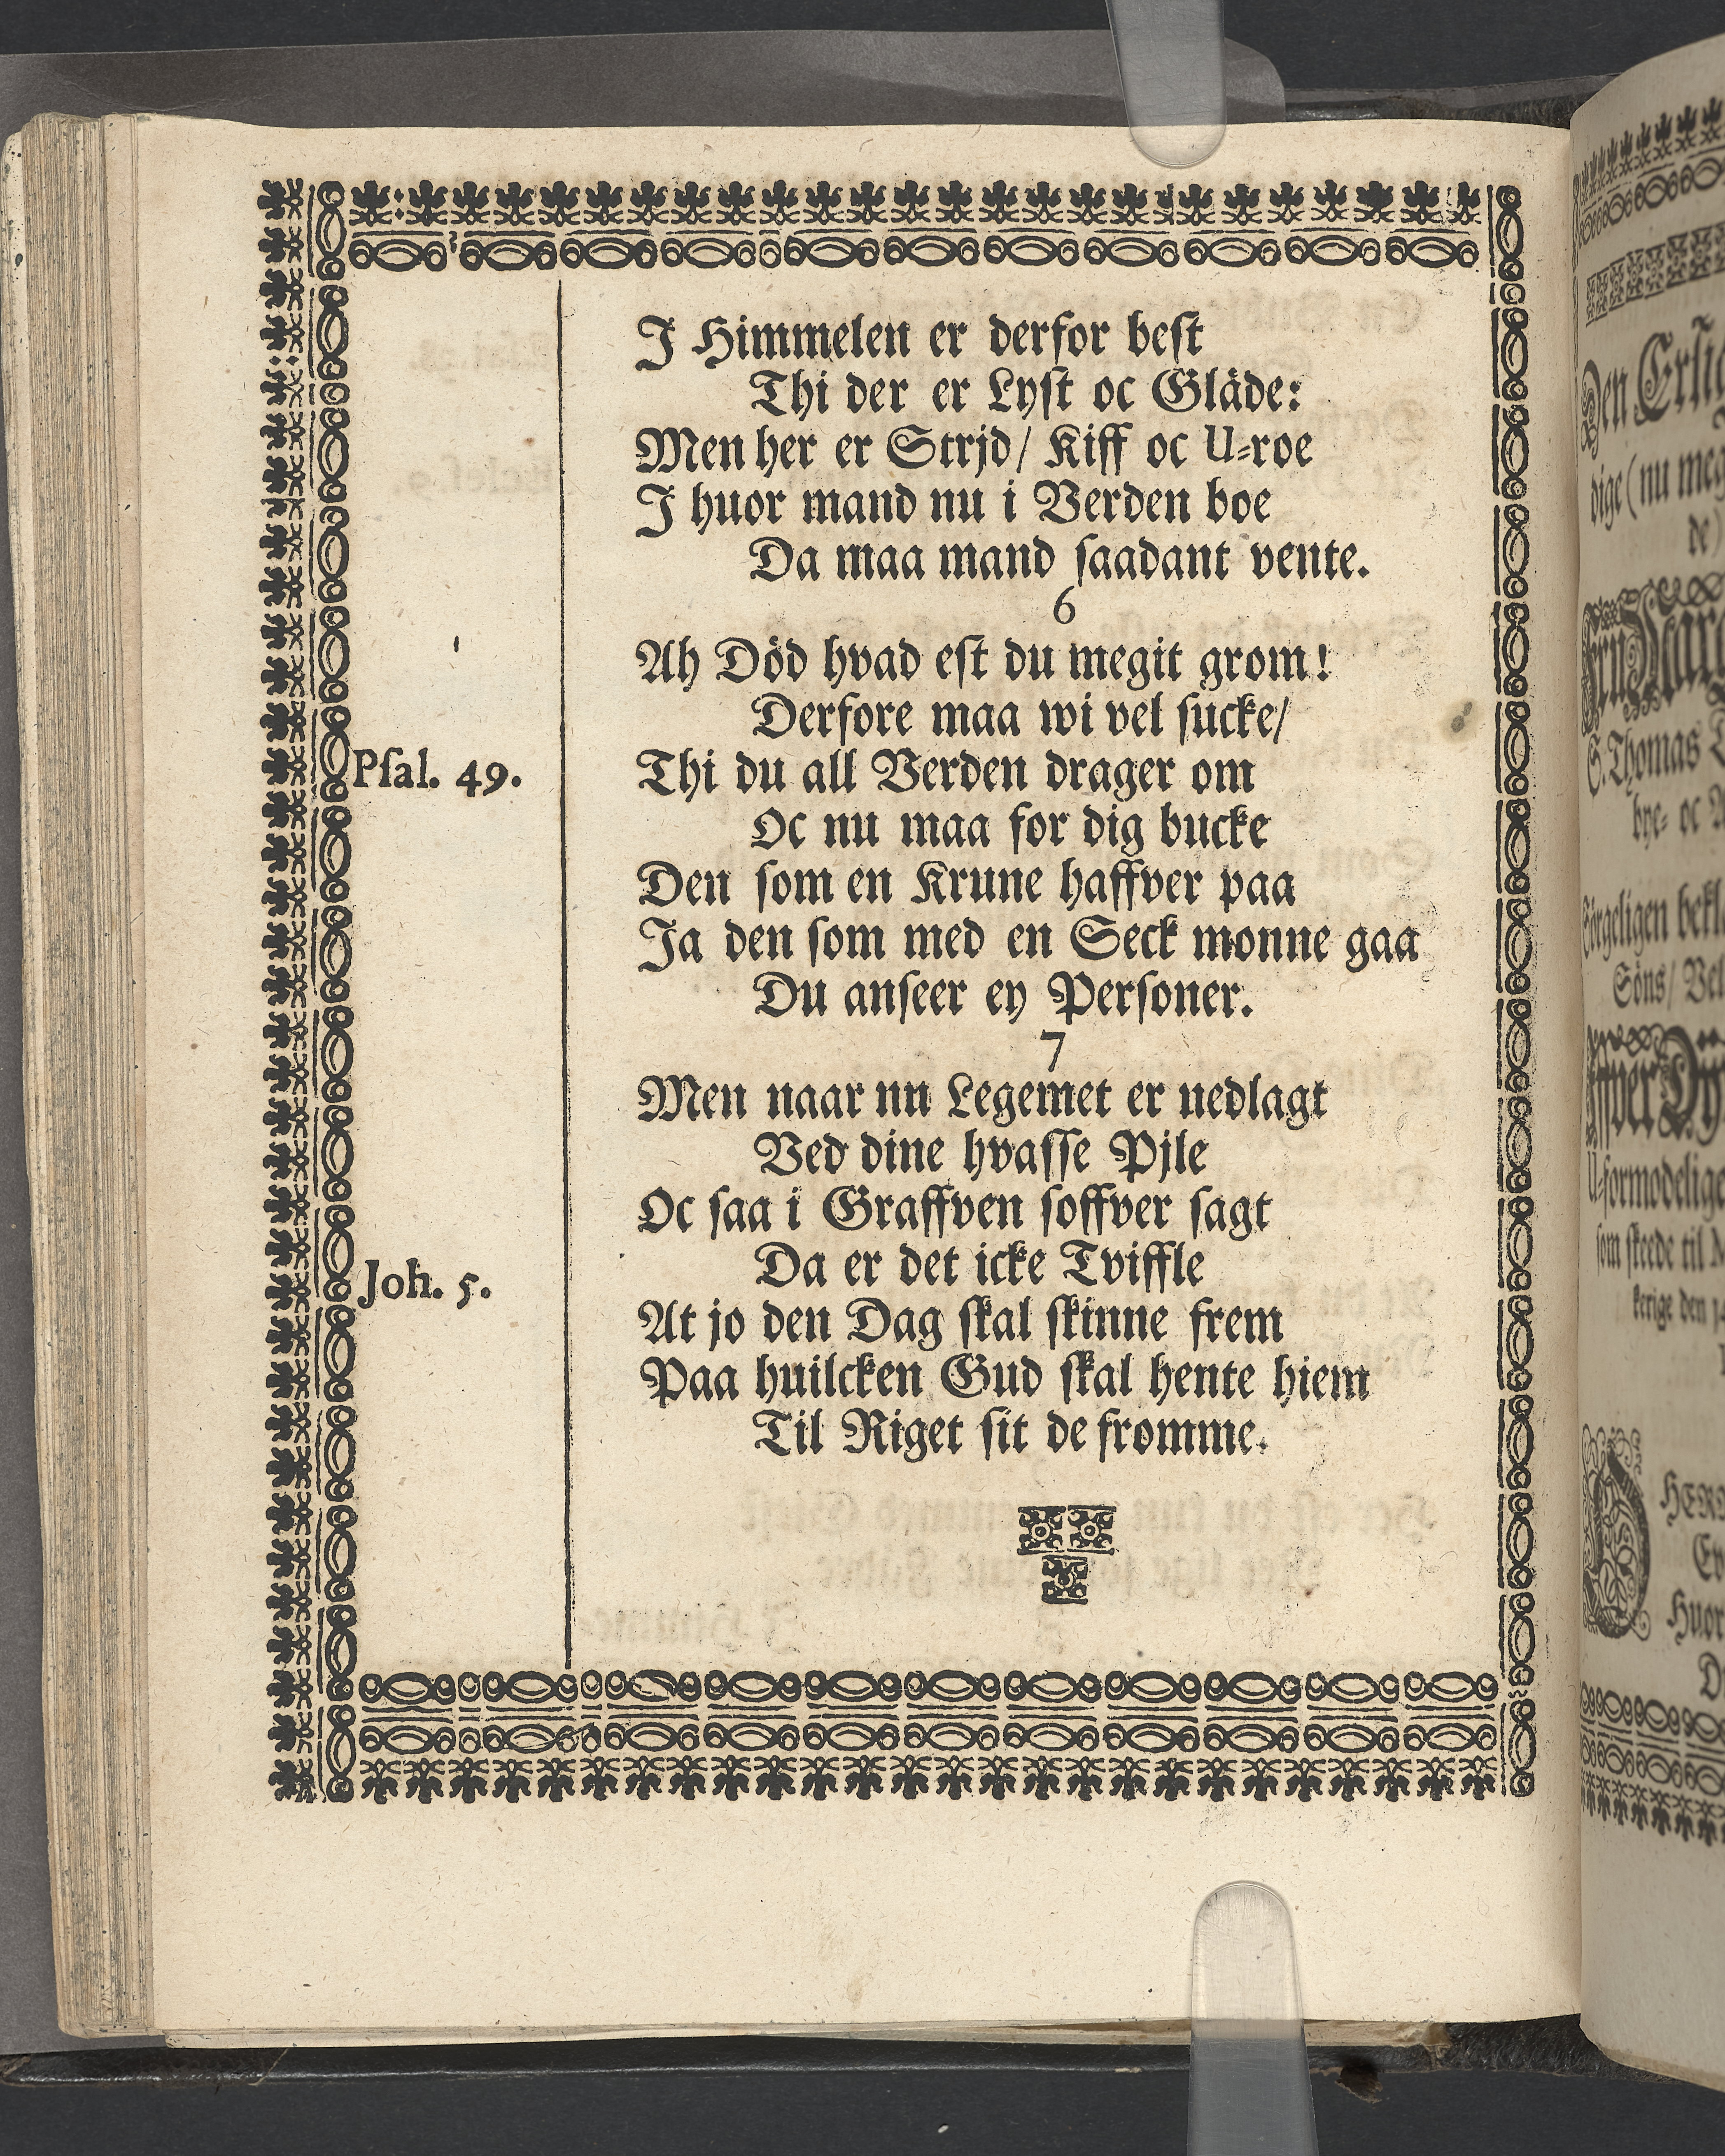 I Himmelen er derfor best
Thi der er Lyst oc Gläde:
Men her er Strjd/ Kiff oc U-roe
I huor mand nu i Verden boe
Da maa mand saadant vente.
6
Ah Död hvad est du megit grom!
Derfore maa wi vel sucke/
Psal. 49. Thi du all Verden drager om
Oc nu maa for dig bucke
Den som en Krune haffver paa
Ja den som med en Seck monne gaa
Du anseer ey Personer.
7
Men naar nu Legemet er nedlagt
Ved dine hvasse Pjle
Oc saa i Graffven soffver sagt
Da er det icke Tviffle
Joh. 5.
At jo den Dag skal skinne frem
Paa huilcken Gud skal hente hiem
Til Riget sit de fromme.
dige (nu meg
de)
S. Thomas
bye- oc
Söns/ Vel
som skeede til